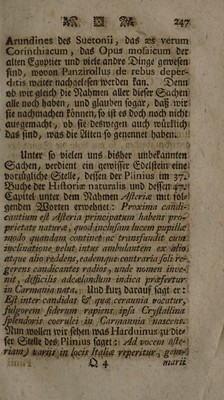 247
Arundines des Suetonii, das æs verum
Corinthiacum, das Opus mosaicum der
alten Egyptier und viele andre Dinge gewesen
sind, wovon Panzirollus de rebus deper-
ditis weiter nachgelesen werden kan. Denn
ob wir gleich die Nahmen aller dieser Sachen
alle noch haben, und glauben sogar, daß wir
sie nachmachen können, so ist es doch noch nicht
ausgemacht, ob sie deswegen auch würklich
das sind, was die Alten so genennet haben.
Unter so vielen uns bisher unbekannten
Sachen, verdient ein gewisser Edelstein eine
vorzügliche Stelle, dessen der Plinius im 37.
Buche der Historiæ naturalis und dessen 47.
Capitel unter dem Nahmen Asteriæ mit fol-
genden Worten erwehnet: Proxima candi-
cantium est Asteria principatum habens pro-
prietate naturæ, quod inclusam lucem pupillæ
modo quandam continet ac transfundit cum
inclinatione velut intus ambulantem ex alio
atque alio reddens, eademque contraria soli re-
gerens candicantes radios, unde nomen inve-
nit, difficilis ad cælandum indica præfertur
in Carmania nata. Und kurz darauf sagt er:
Est inter candidas & quæ ceraunia vocatur,
fulgorem siderum rapiens ipsa Crystallina
splendoris coerulei in Carmannia nascens.
Nun wollen wir sehen was Harduinus zu die-
ser Stelle des Plinius saget: Ad vocem aste-
riam; variis in locis Italiæ reperitur, gem-
Q 4 marii